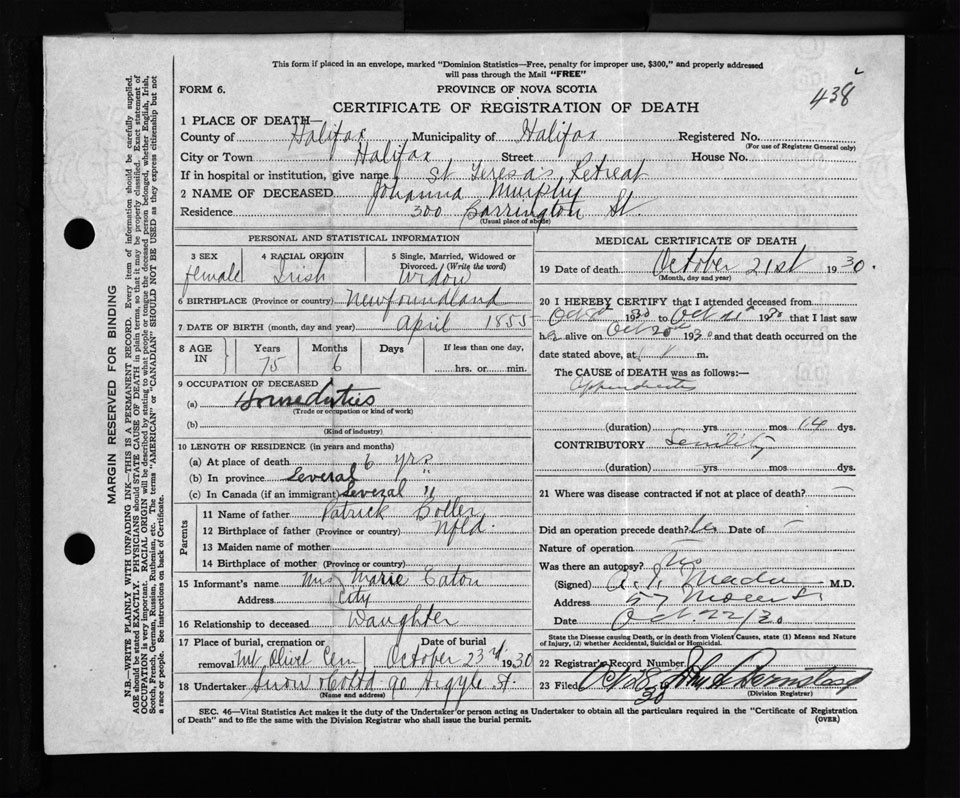 This form if placed in an envelope, marked "Dominion Statistics—Free, penalty for improper use, $300," and properly addressed
will pass through the Mail "FREE"
438
FORM 6.
PROVINCE OF NOVA SCOTIA
CERTIFICATE OF REGISTRATION OF DEATH
1 PLACE OF DEATH—
County of Halifax Municipality of Halifax Registered No.
(For use of Registrar General only)
City or Town Halifax Street House No.
If in hospital or institution, give name St Teresa's Retreat
2 NAME OF DECEASED Johanna Murphy
Residence 300 Barrington St.
(Usual place of abode)
PERSONAL AND STATISTICAL INFORMATION
3 SEX 4 RACIAL ORIGIN 5 Single, Married, Widowed or
Divorced. (Write the word)
female Irish Widow
6 BIRTHPLACE (Province or country) Newfoundland
7 DATE OF BIRTH (month, day and year) April 1855
8 AGE IN Years Months Days If less than one day,
75 6 hrs. or min.
9 OCCUPATION OF DECEASED
(a) Home duties
(Trade or occupation or kind of work)
(b)
(Kind of industry)
10 LENGTH OF RESIDENCE (in years and months)
(a) At place of death 6 yrs
(b) In province Several "
(c) In Canada (if an immigrant) Several "
Parents
11 Name of father Patrick
12 Birthplace of father (Province or country) Nfld.
13 Maiden name of mother
14 Birthplace of mother (Province or country)
15 Informant's name Mrs Marie Eaton
Address City
16 Relationship to deceased Daughter
17 Place of burial, cremation or removal Mt Olivet Cem Date of burial October 23rd 1930
18 Undertaker Snow & Co Ltd 90 Argyle St.
(Name and address)
MEDICAL CERTIFICATE OF DEATH
19 Date of death October 21st 1930.
(Month, day and year)
20 I HEREBY CERTIFY that I attended deceased from
Oct 8th 1930 to Oct 21st 1930 that I last saw
her alive on Oct 20th 1930 and that death occurred on the
date stated above, at m.
The CAUSE of DEATH was as follows:—
Appendicitis
(duration) yrs mos 14 dys.
CONTRIBUTORY Senility
(duration) yrs mos dys.
21 Where was disease contracted if not at place of death? —
Did an operation precede death? Date of —
Nature of operation
Was there an autopsy? No
(Signed) M.D.
Address 57 St
Date Oct. 22/30
State the Disease causing Death, or in death from Violent Causes, state (1) Means and Nature
of Injury, (2) whether Accidental, Suicidal, or Homicidal
22 Registrar's Record Number
23 Filed Oct 28 30 John A
(Division Registrar)
SEC. 46—Vital Statistics Act makes it the duty of the Undertaker or person acting as Undertaker to obtain all the particulars required in the "Certificate of Registration
of Death" and to file the same with the Division Registrar who shall issue the burial permit.
(OVER)
MARGIN RESERVED FOR BINDING
N.B.—WRITE PLAINLY WITH UNFADING INK—THIS IS A PERMANENT RECORD. Every item of information should be carefully supplied.
AGE should be stated EXACTLY. PHYSICIANS should STATE CAUSE OF DEATH in plain terms, so that it may be properly classified. Exact statement of
OCCUPATION is very important. RACIAL ORIGIN will be described by stating to what people or tongue the deceased person belonged, whether English, Irish,
Scotch, French, German, Russian, Ruthenian, etc. The terms "AMERICAN" or "CANADIAN" SHOULD NOT BE USED as they express citizenship but not
a race or people. See instructions on back of Certificate.